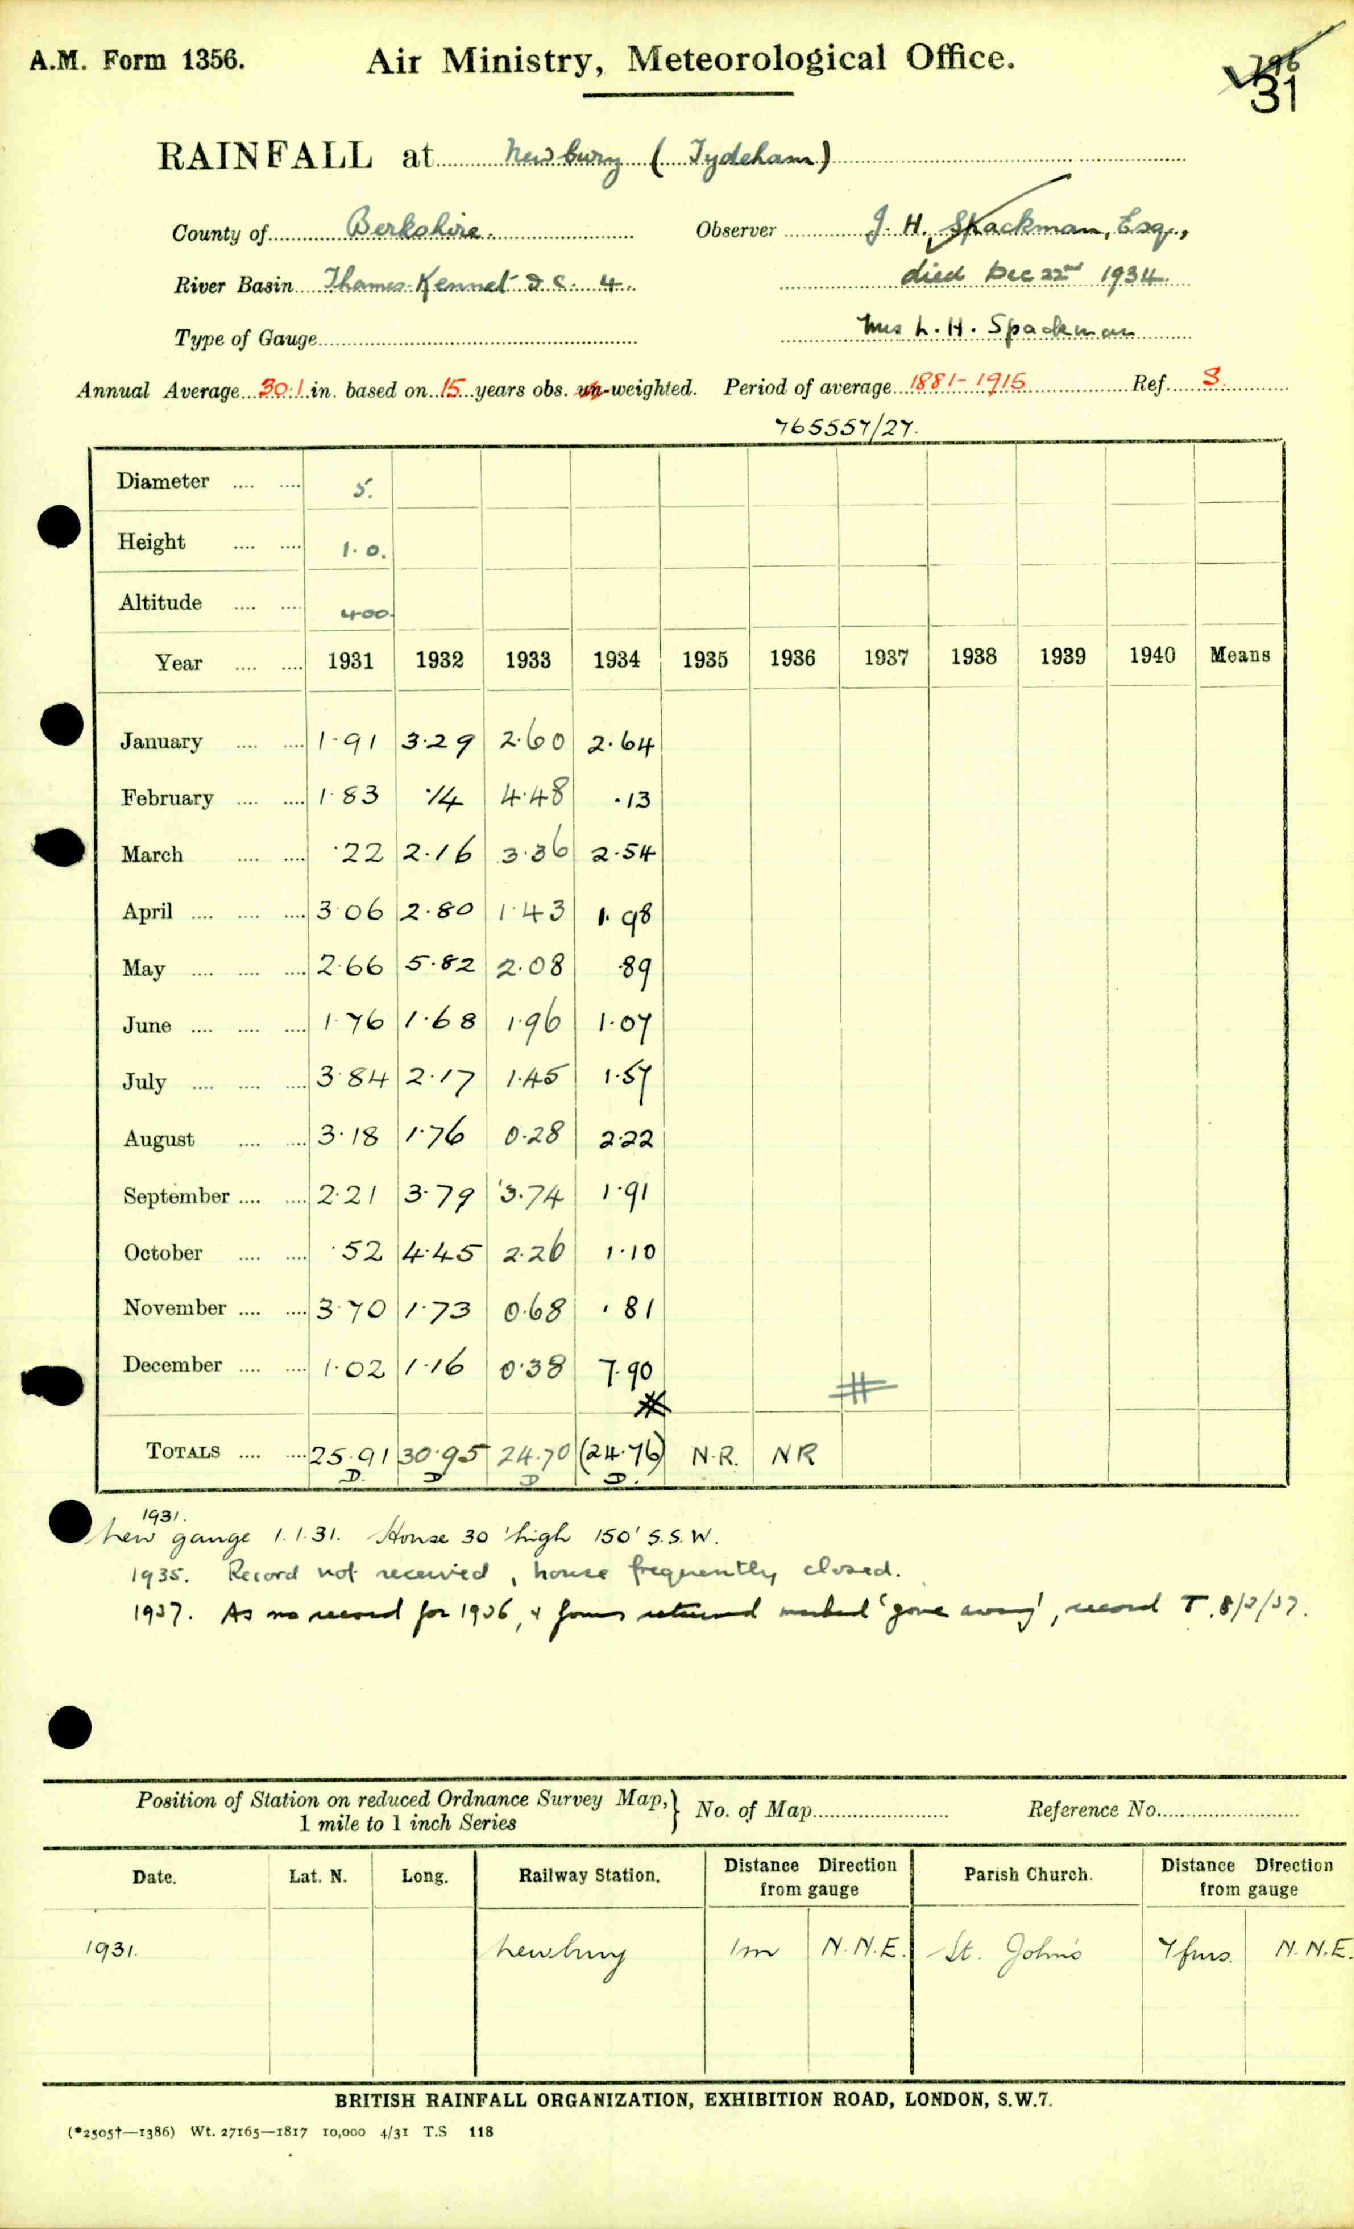 A.M. Form 1356. Air Ministry, Meteorological Office. 796
31
RAINFALL at Newbury (Tydeham)
County of Berkshire. Observer J. H. Spackman, Esq.,
River Basin Thames-Kennet D.C. 4. died Dec 22nd 1934.
Type of Gauge Mrs L. H. Spackman
Annual Average 30.1 in. based on 15 years obs. un-weighted. Period of average 1881-1915 Ref. S
765557/27.
Diameter 5.
Height 1.0.
Altitude 400.
Year 1931 1932 1933 1934 1935 1936 1937 1938 1939 1940 Means
January 1.91 3.29 2.60 2.64
February 1.83 .14 4.48 .13
March .22 2.16 3.36 2.54
April 3.06 2.80 1.43 1.98
May 2.66 5.82 2.08 .89
June 1.76 1.68 1.96 1.07
July 3.84 2.17 1.45 1.57
August 3.18 1.76 0.28 2.22
September 2.21 3.79 3.74 1.91
October .52 4.45 2.26 1.10
November 3.70 1.73 0.68 .81
December 1.02 1.16 0.38 7.90
TOTALS 25.91 30.95 24.70 (24.76) N.R. NR
D. D D D.
1931.
New gauge 1.1.31. House 30' high 150' S.S.W.
1935. Record not received, house frequently closed.
1937. As no record for 1936, & forms returned marked 'gone away', record T. 8/2/37.
Position of Station on reduced Ordnance Survey Map, No. of Map Reference No.
1 mile to 1 inch Series
Date. Lat. N. Long. Railway Station. Distance Direction from gauge Parish Church. Distance Direction from gauge
1931. Newbury 1m N.N.E. St. John's 7 furs. N.N.E.
BRITISH RAINFALL ORGANIZATION, EXHIBITION ROAD, LONDON, S.W.7.
(*2505†—1386) Wt. 27165—1817 10,000 4/31 T.S 118